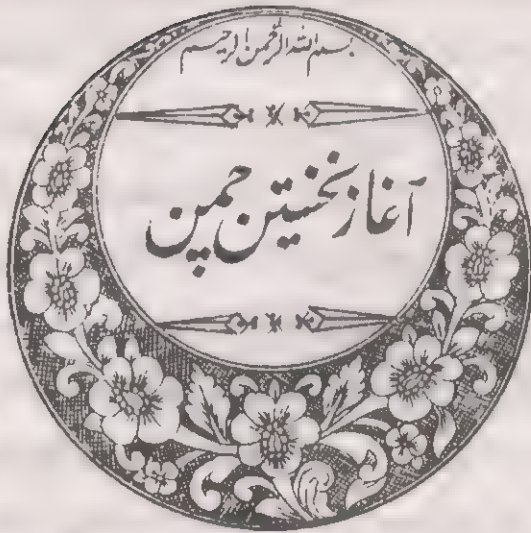 بسم الله الرحمن الرحیم
آغاز نخستین چمن